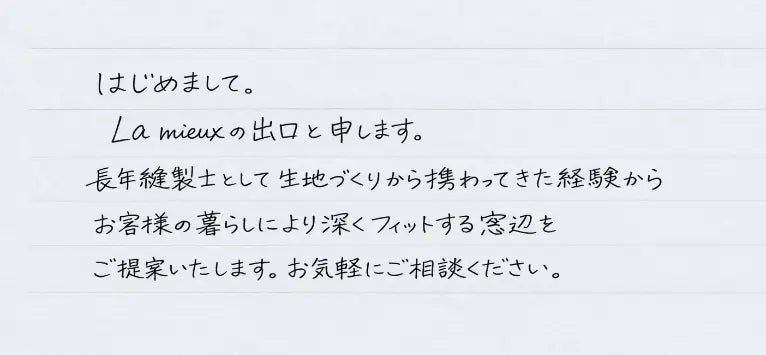 はじめまして。
La mieuxの出口と申します。
長年縫製士として生地づくりから携わってきた経験から
お客様の暮らしにより深くフィットする窓辺を
ご提案いたします。お気軽にご相談ください。